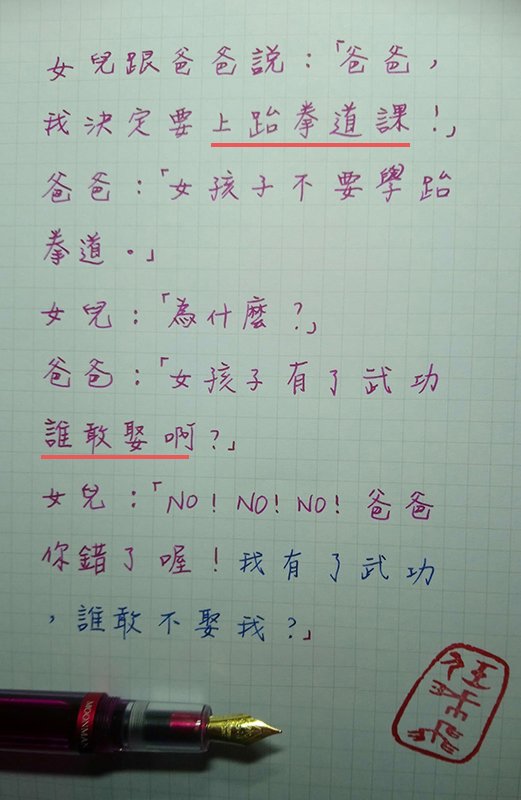 女兒跟爸爸説：「爸爸，
我決定要上跆拳道課！」
爸爸：「女孩子不要學跆
拳道。」
女兒：「為什麼？」
爸爸：「女孩子有了武功
誰敢娶啊？」
女兒：「NO！NO！NO！爸爸
你錯了喔！我有了武功
，誰敢不娶我？」